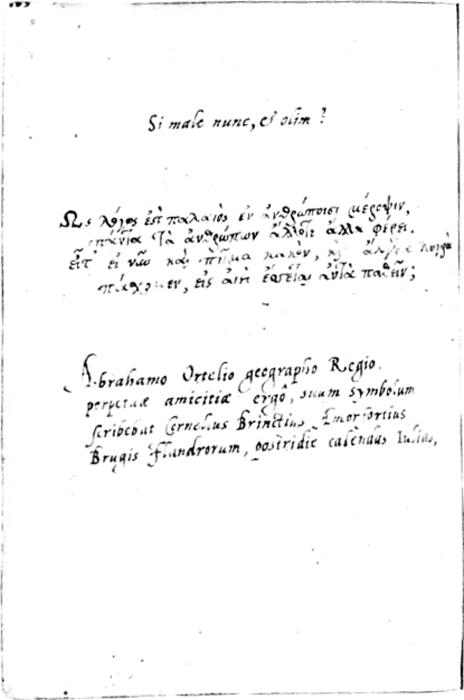 Si male nunc, & olim?
Ως λόγος ἐστὶ παλαιὸς ἐν ἀνθρώποισι μέροψιν,
πάντα τὰ ἀνθρώπων ἄλλοτε ἄλλα φέρει.
εἶτ' εἰ νῶϊ καὶ πῆμα κακὸν, καὶ ἄλγεα λυγρὰ
πάσχομεν, εἰς αἰεὶ αὐτὰ παθεῖν;
Abrahamo Ortelio geographo Regio,
perpetuæ amicitiæ ergô, suum symbolum
scribebat Cornelius Brinctius, Emorfortius
Brugis flandrorum, postridie calendas Iulias,